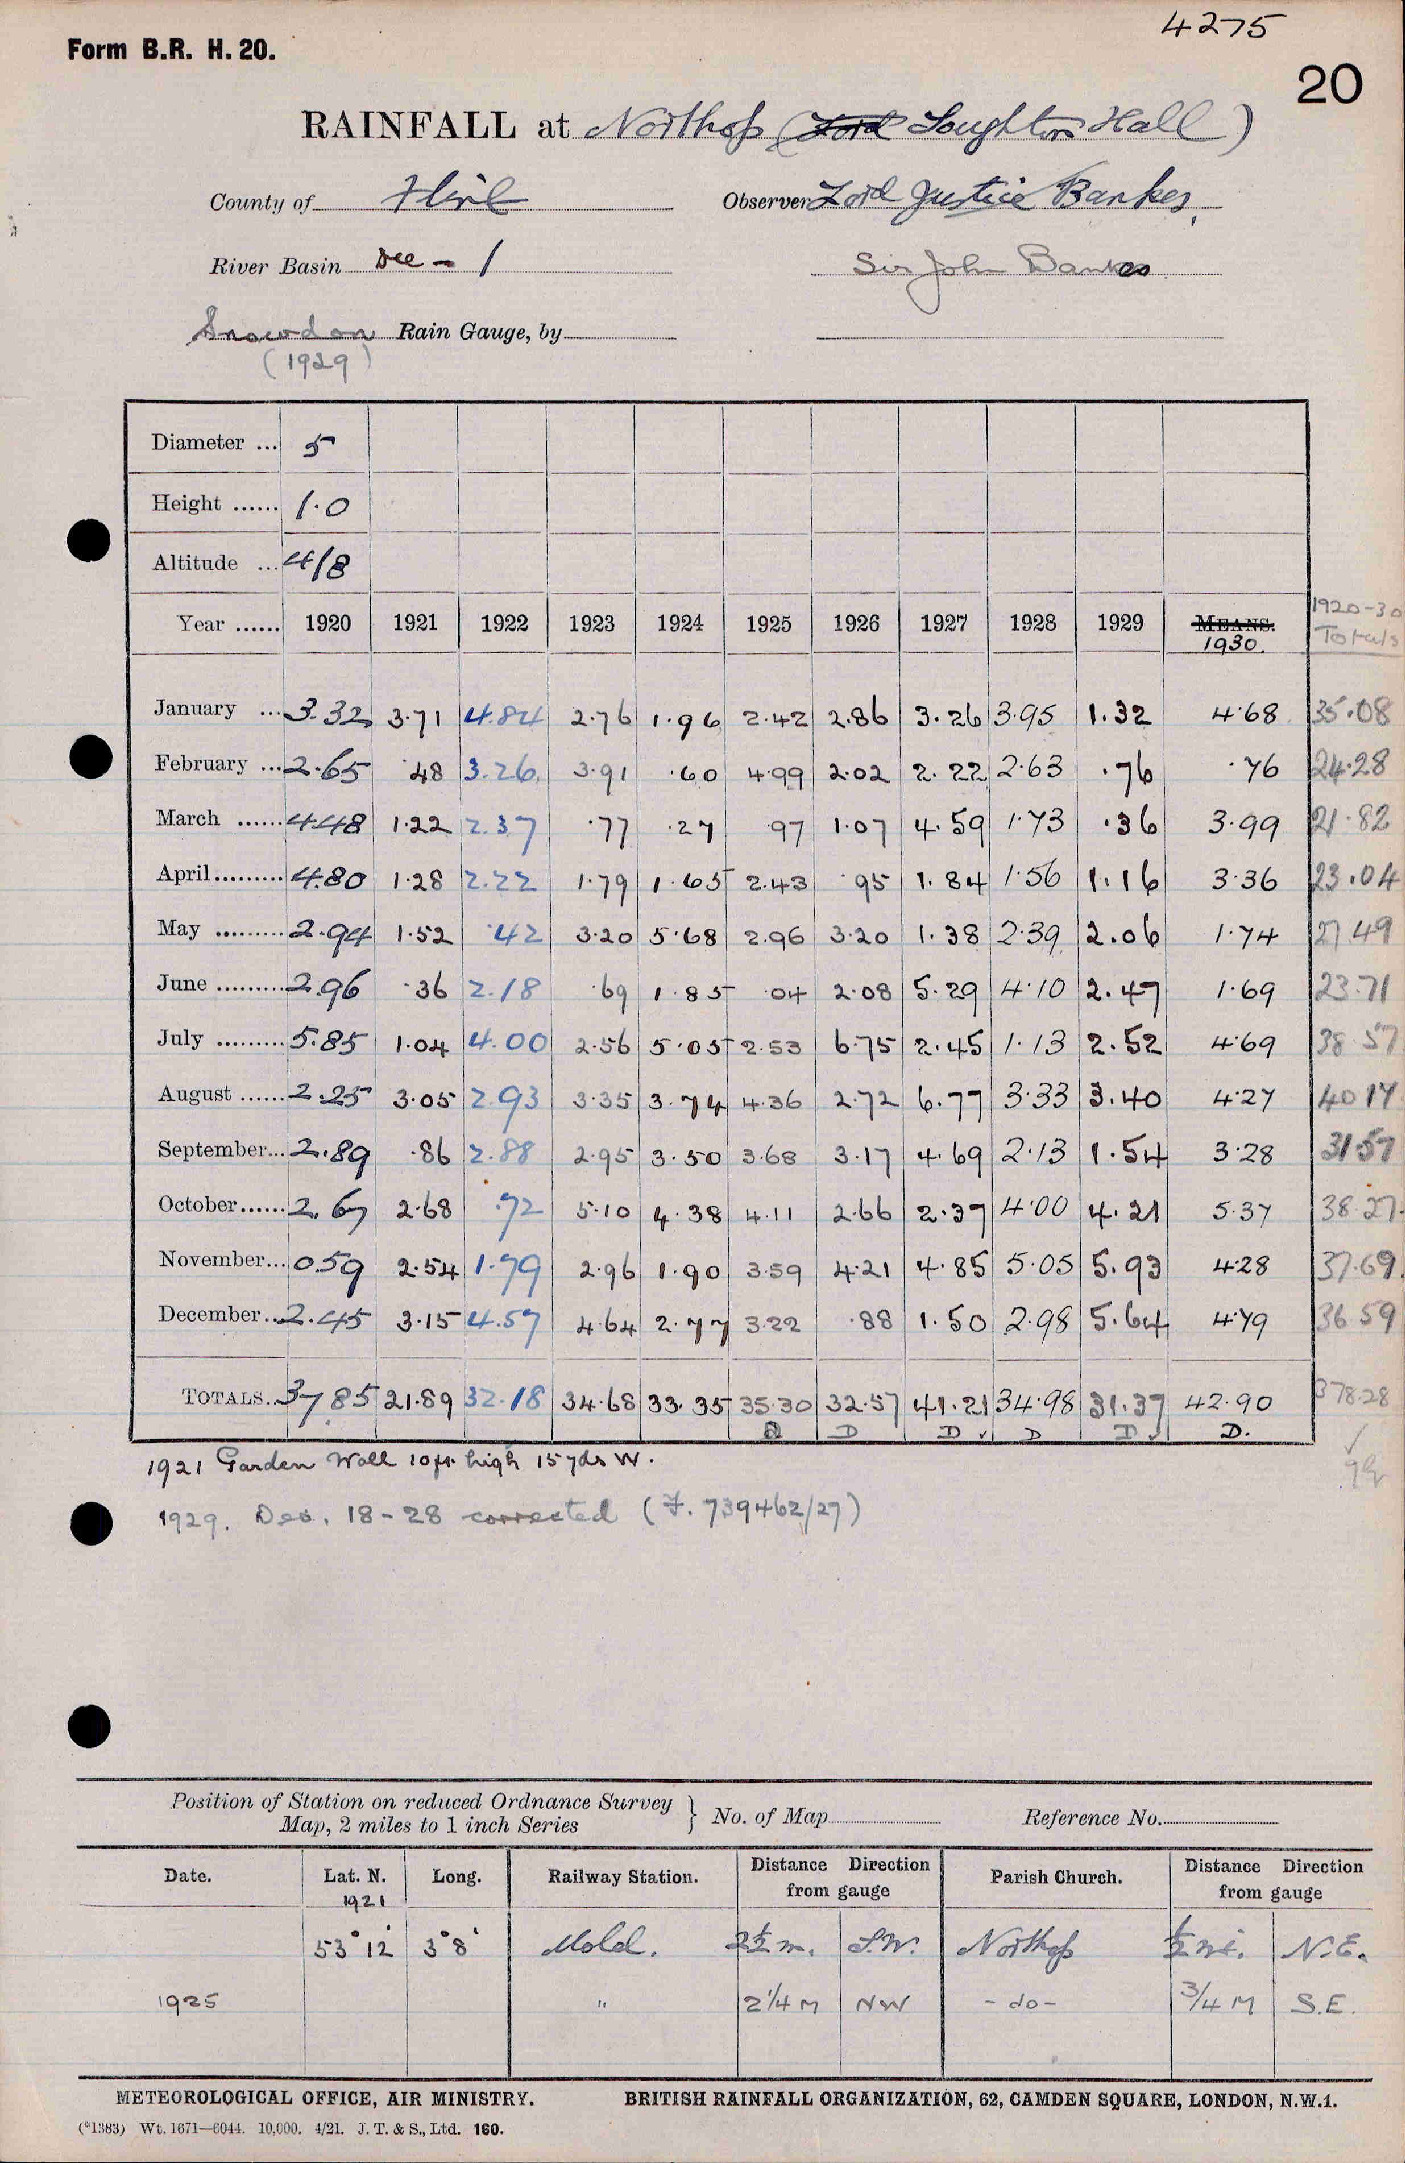 4275
Form B.R. H. 20.
20
RAINFALL at Northop (Lord Soughton Hall)
County of Flint Observer Lord Justice Bankes,
River Basin Dee - 1 Sir John Bankes
Snowdon Rain Gauge, by
(1929)
Diameter ... 5
Height ...... 1.0
Altitude ... 418
1920-30
Year ...... 1920 1921 1922 1923 1924 1925 1926 1927 1928 1929 MEANS. Totals
1930.
January ... 3.32 3.71 4.84 2.76 1.96 2.42 2.86 3.26 3.95 1.32 4.68 35.08
February ... 2.65 .48 3.26 3.91 .60 4.99 2.02 2.22 2.63 .76 .76 24.28
March ...... 4.48 1.22 2.37 .77 .27 .97 1.07 4.59 1.73 .36 3.99 21.82
April......... 4.80 1.28 2.22 1.79 1.65 2.43 .95 1.84 1.56 1.16 3.36 23.04
May ......... 2.94 1.52 .42 3.20 5.68 2.96 3.20 1.38 2.39 2.06 1.74 27 49
June ......... 2.96 .36 2.18 .69 1.85 .04 2.08 5.29 4.10 2.47 1.69 23.71
July ......... 5.85 1.04 4.00 2.56 5.05 2.53 6.75 2.45 1.13 2.52 4.69 38 57
August ...... 2.25 3.05 2.93 3.35 3.74 4.36 2.72 6.77 3.33 3.40 4.27 40 17
September... 2.89 .86 2.88 2.95 3.50 3.68 3.17 4.69 2.13 1.54 3.28 31.57
October...... 2.67 2.68 .72 5.10 4.38 4.11 2.66 2.37 4.00 4.21 5.37 38.27
November... 0.59 2.54 1.79 2.96 1.90 3.59 4.21 4.85 5.05 5.93 4.28 37.69
December... 2.45 3.15 4.57 4.64 2.77 3.22 .88 1.50 2.98 5.64 4.79 36 59
TOTALS. 37 85 21.89 32.18 34.68 33.35 35.30 32.57 41.21 34.98 31.37 42.90 378.28
D D D D D.
1921 Garden Wall 10 ft. high 15 yds W.
1929. Dec. 18-28 corrected (F. 739462/27)
Position of Station on reduced Ordnance Survey
Map, 2 miles to 1 inch Series } No. of Map Reference No.
Date. Lat. N. Long. Railway Station. Distance Direction from gauge Parish Church. Distance Direction from gauge
1921
53° 12' 3° 8' Mold. 2½ m. S.W. Northop ½ mi. N.E.
1925 " 2¼ M NW - do - ¾ M S.E.
METEOROLOGICAL OFFICE, AIR MINISTRY. BRITISH RAINFALL ORGANIZATION, 62, CAMDEN SQUARE, LONDON, N.W.1.
(*1383) Wt. 1671—6044. 10,000. 4/21. J. T. & S., Ltd. 160.